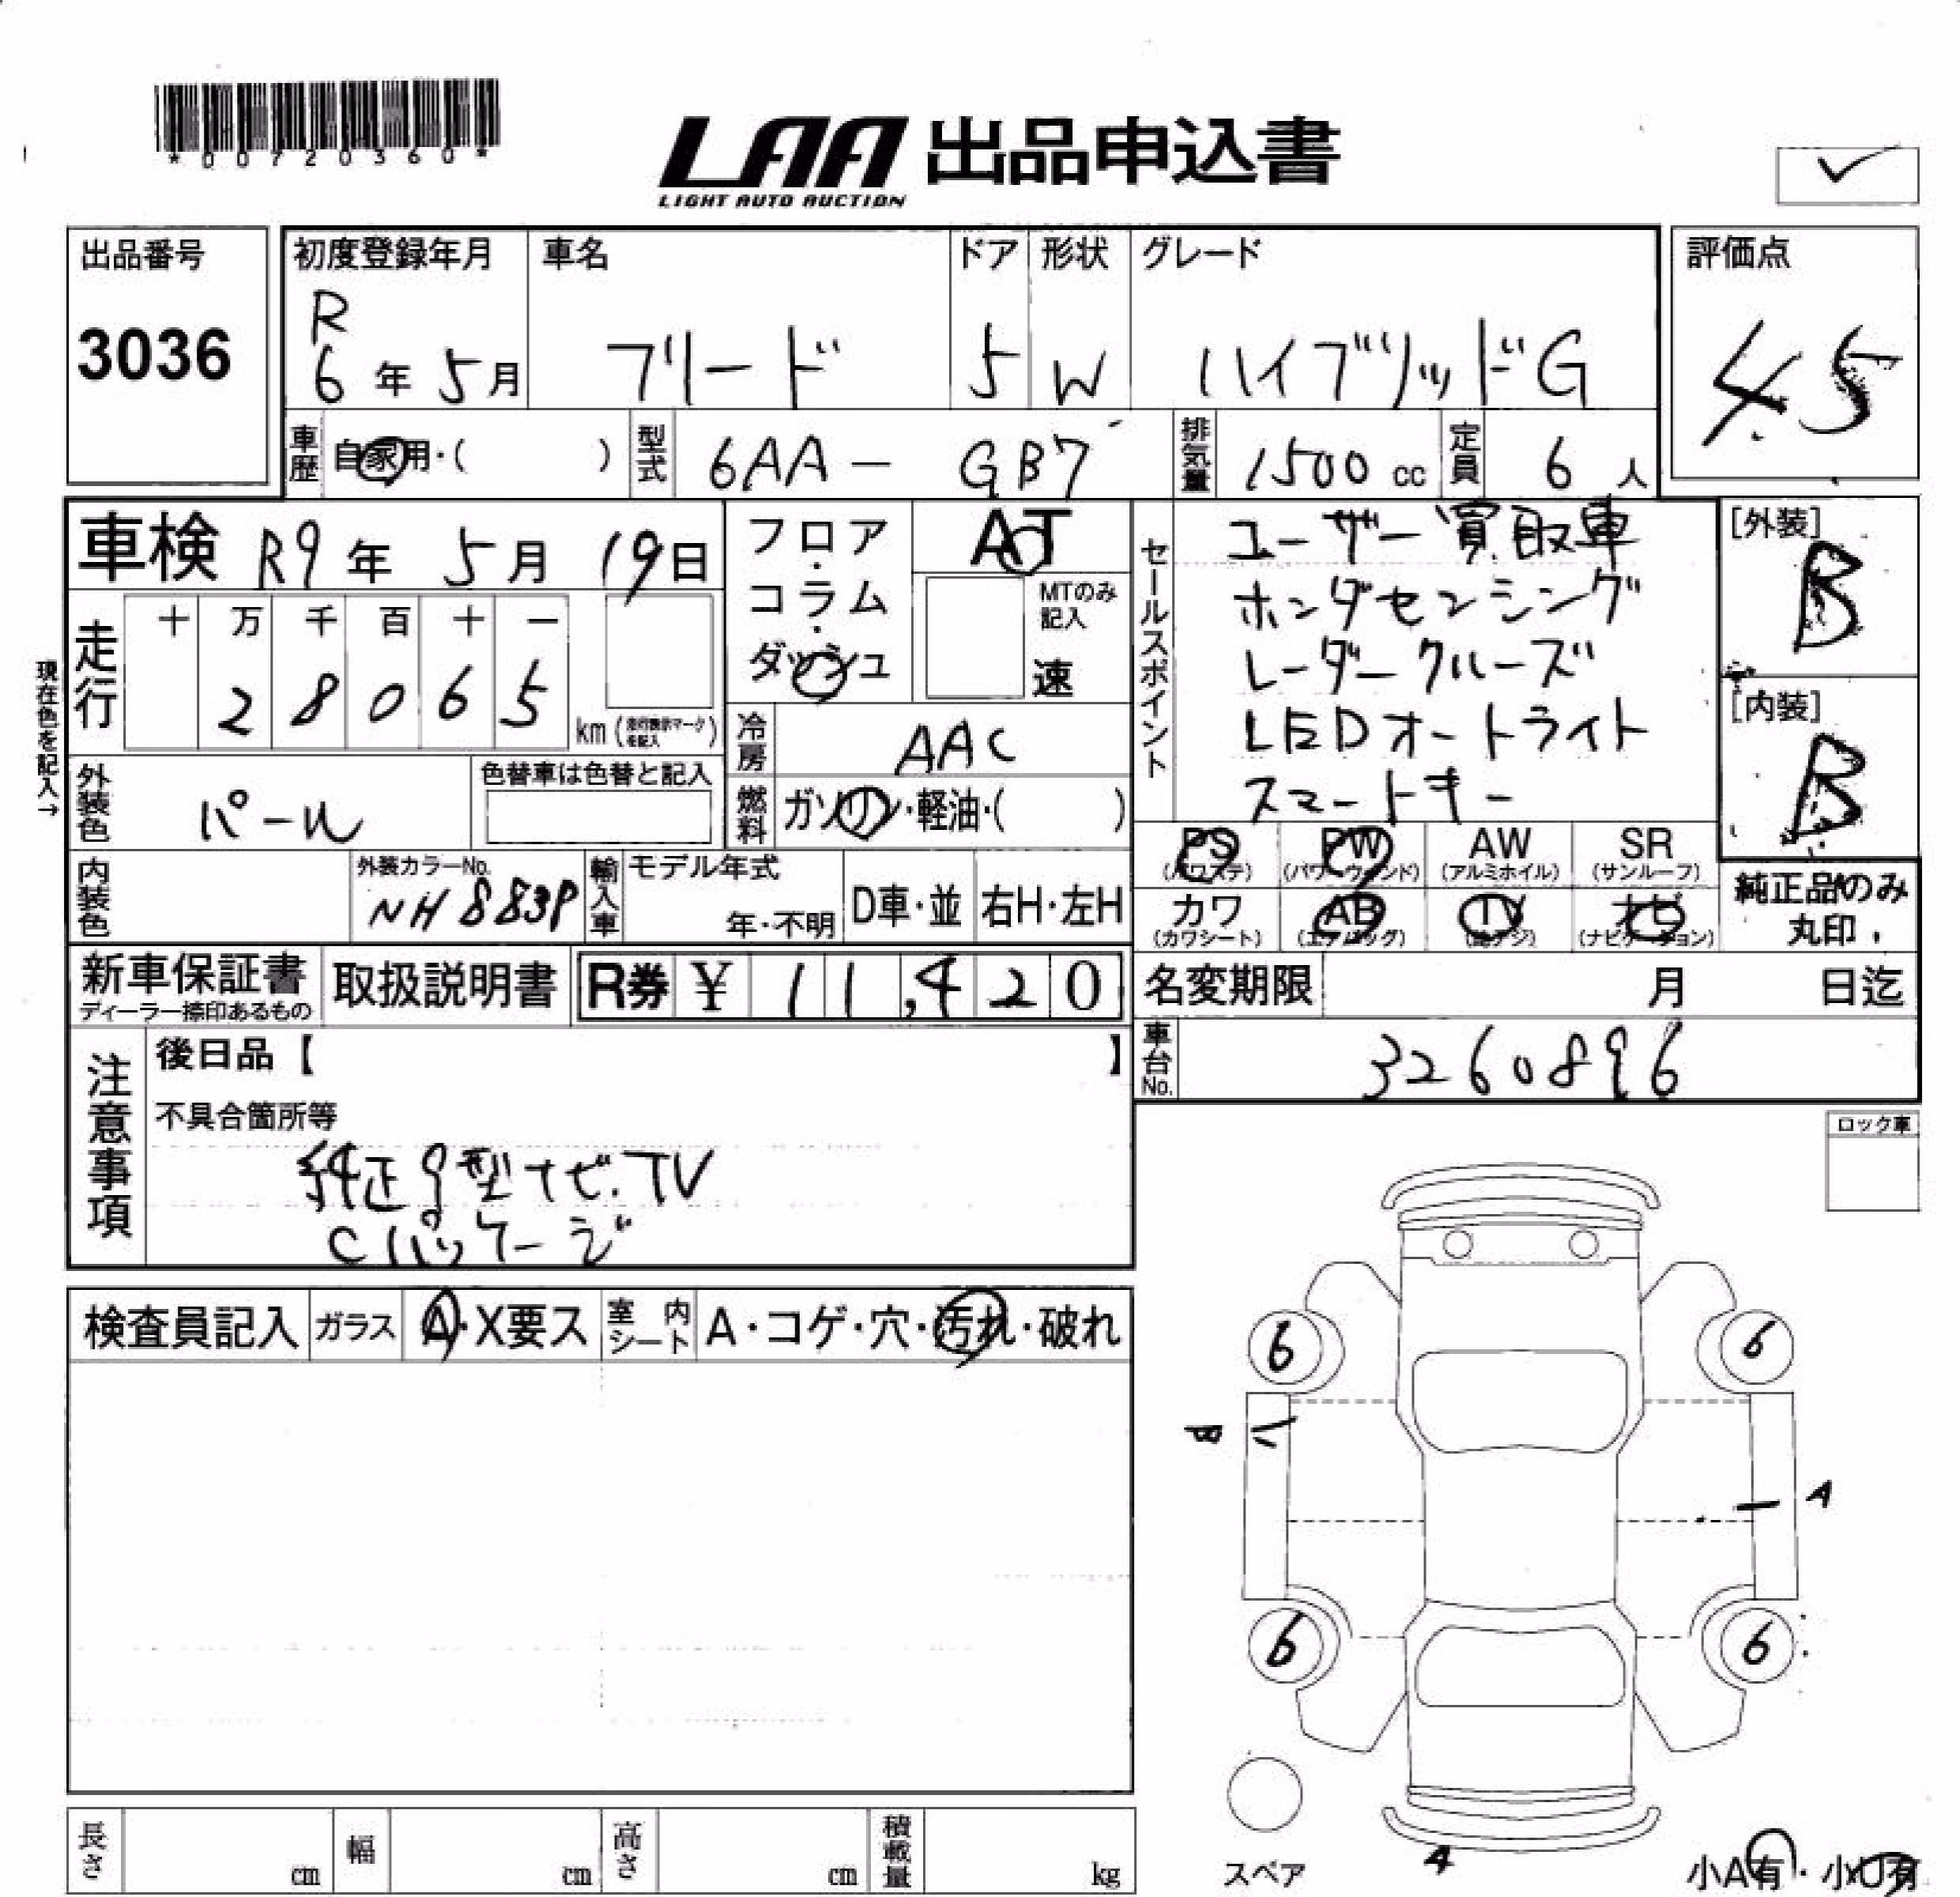 *00720360*
LAA 出品申込書
LIGHT AUTO AUCTION
出品番号
3036
初度登録年月
R
6年5月
車名
フリード
ドア
5
形状
W
グレード
ハイブリッドG
評価点
4.5
車歴
自家用・( )
型式
6AA- GB7
排気量
1500cc
定員
6人
車検 R9年 5月 19日
フロア・コラム・ダッシュ
AT
MTのみ記入
速
走行
十 万 千 百 十 一
2 8 0 6 5
km(走行表示マークを記入)
現在色を記入→
冷房
AAC
外装色
パール
色替車は色替と記入
燃料
ガソリン・軽油・( )
セールスポイント
ユーザー買取車
ホンダセンシング
レーダークルーズ
LEDオートライト
スマートキー
[外装]
B
[内装]
B
PS (パワステ)
PW (パワーウインド)
AW (アルミホイル)
SR (サンルーフ)
カワ (カワシート)
AB (エアバッグ)
TV (地デジ)
ナビ (ナビゲーション)
純正品のみ
丸印
内装色
外装カラーNo.
NH883P
輸入車
モデル年式
年・不明
D車・並
右H・左H
新車保証書
ディーラー捺印あるもの
取扱説明書
R券 ¥ 11,420
名変期限 月 日迄
車台No.
3260896
注意事項
後日品【 】
不具合箇所等
純正9型ナビ.TV
Cパッケージ
ロック車
検査員記入
ガラス
A・X要ス
室内シート
A・コゲ・穴・汚れ・破れ
6 6
B
A
6 6
スペア
A
小A有・小U有
長さ cm
幅 cm
高さ cm
積載量 kg